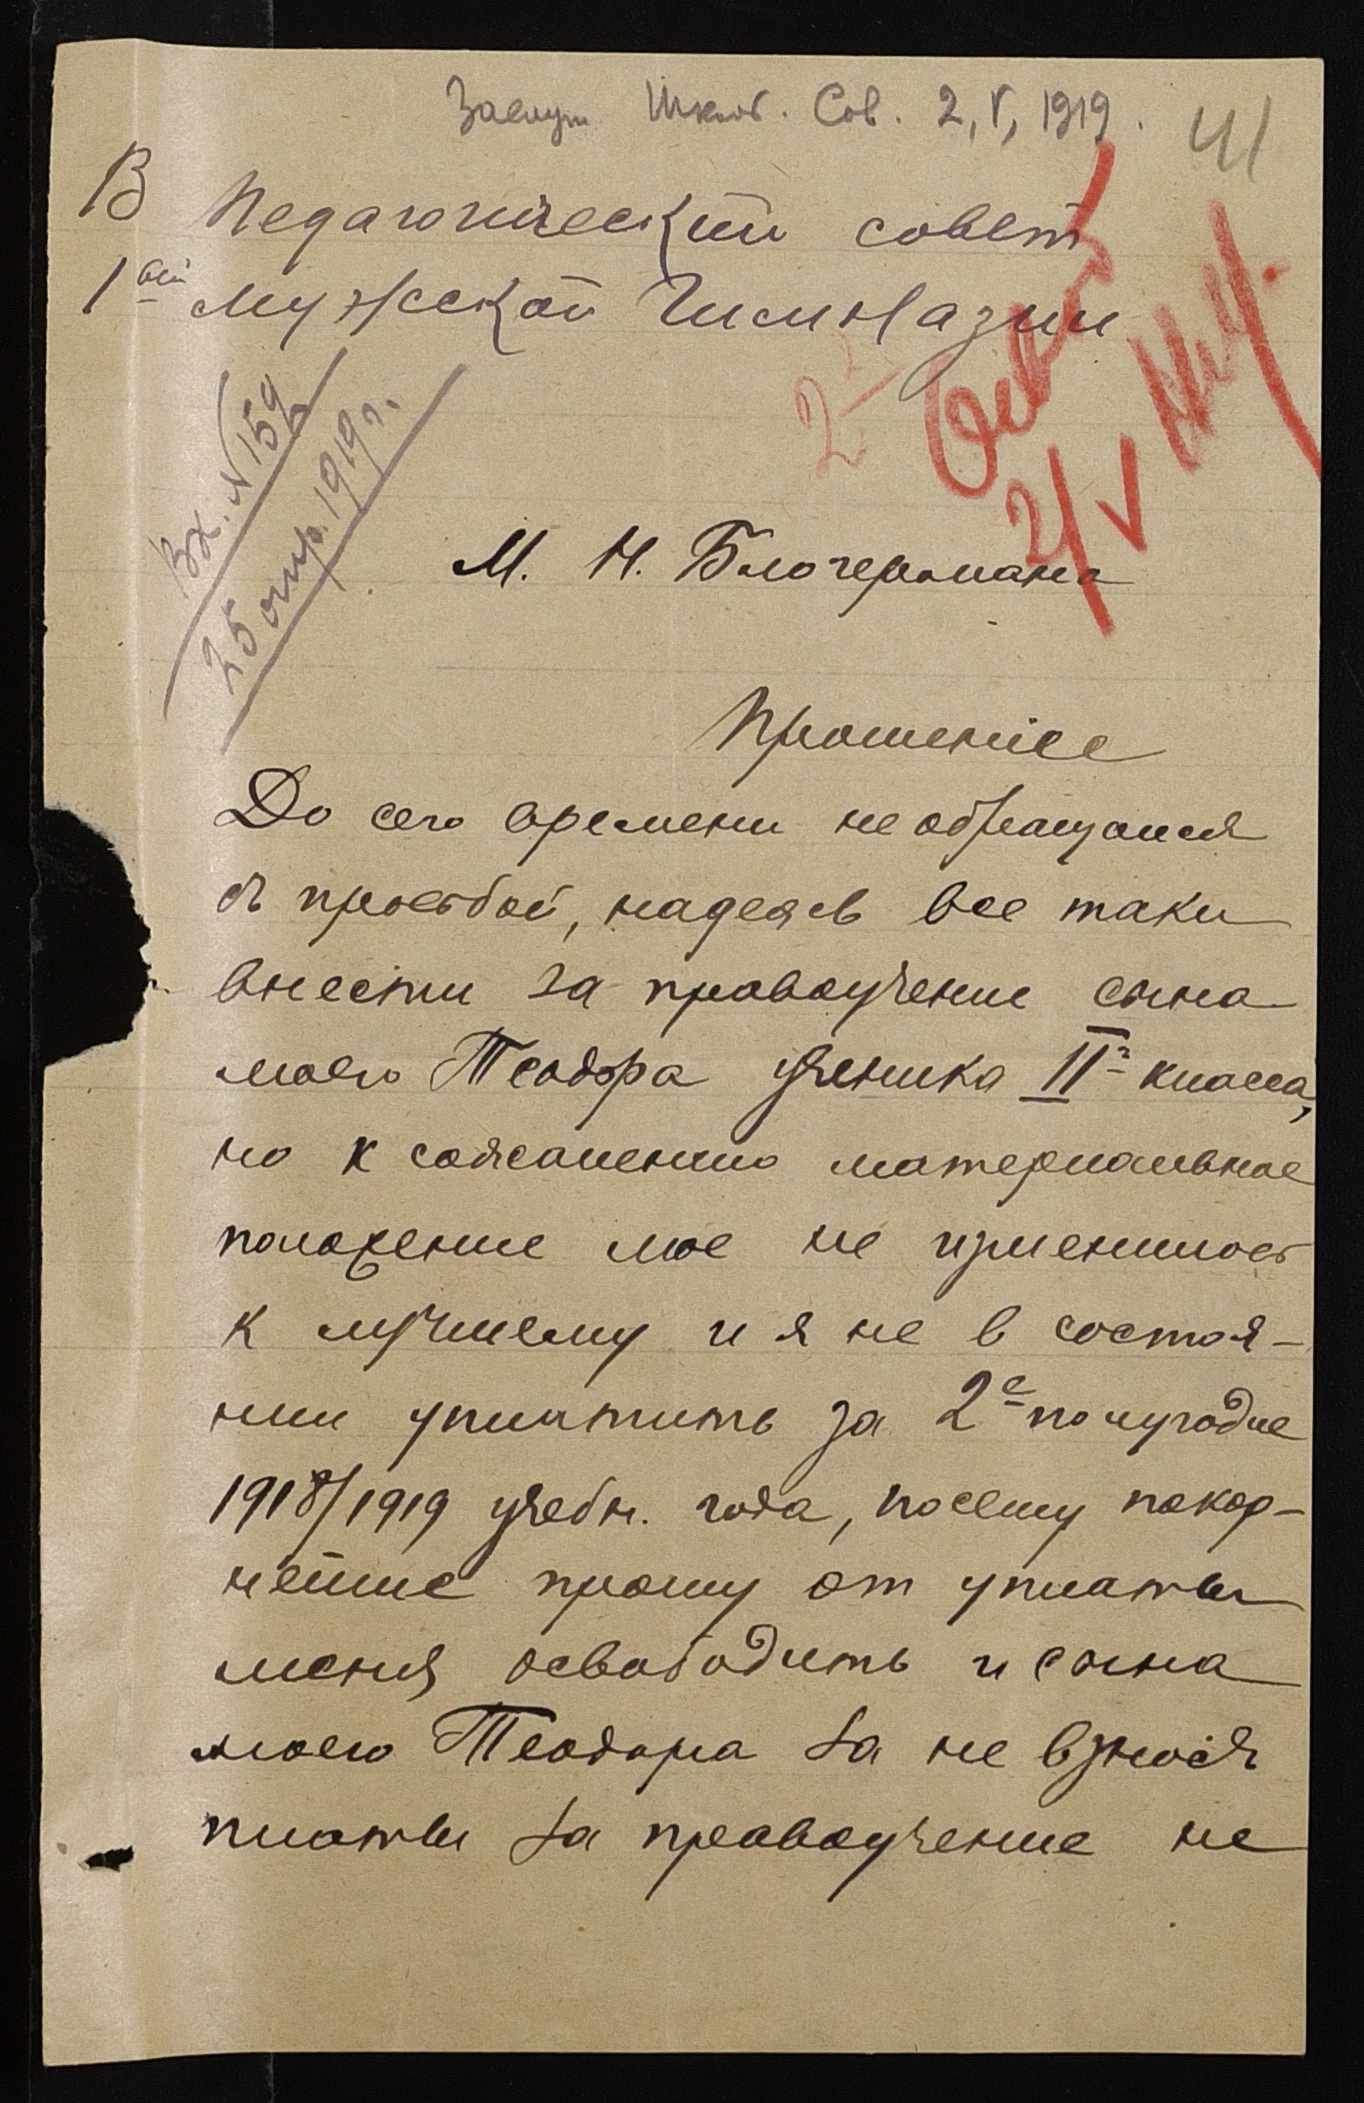 Заслуш. Школ. Сов. 2, V, 1919.
41
В Педагогический совет
1ой мужской Гимназии
Вх. N 159
25 апр. 1919 г.
2/V
М. Н. Блюгермана
Прошение
До сего времени не обращался
с просьбой, надеясь все таки
внести за правоучение сына
моего Теодора ученика II класса,
но к сожалению материальное
положение мое не изменилось
к лучшему и я не в состоя-
нии уплатить за 2е полугодие
1918/1919 учебн. года, посему покор-
нейше прошу от уплаты
меня освободить и сына
моего Теодора за не взнося
платы за правоучение не